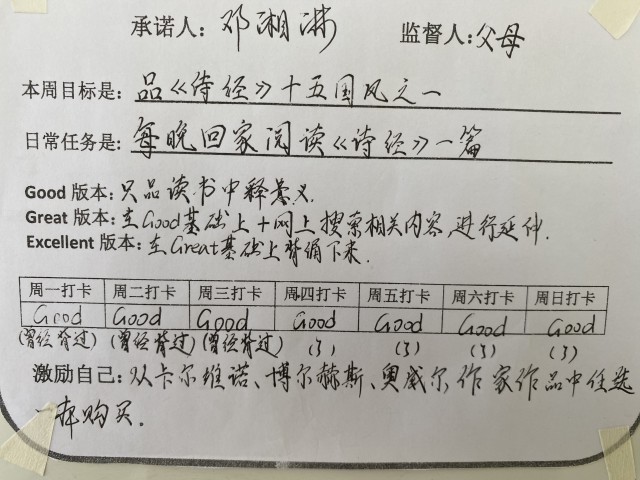 承诺人：邓湘淋 监督人：父母
本周目标是：品《诗经》十五国风之一
日常任务是：每晚回家阅读《诗经》一篇
Good 版本：只品读书中释意义.
Great 版本：在Good基础上+网上搜索相关内容进行延伸.
Excellent 版本：在Great基础上背诵下来.
周一打卡 周二打卡 周三打卡 周四打卡 周五打卡 周六打卡 周日打卡
Good Good Good Good Good Good Good
(曾经背过) (曾经背过) (曾经背过) (3) (3) (3) (3)
激励自己：从卡尔维诺、博尔赫斯、奥威尔作家作品中任选
一本购买.